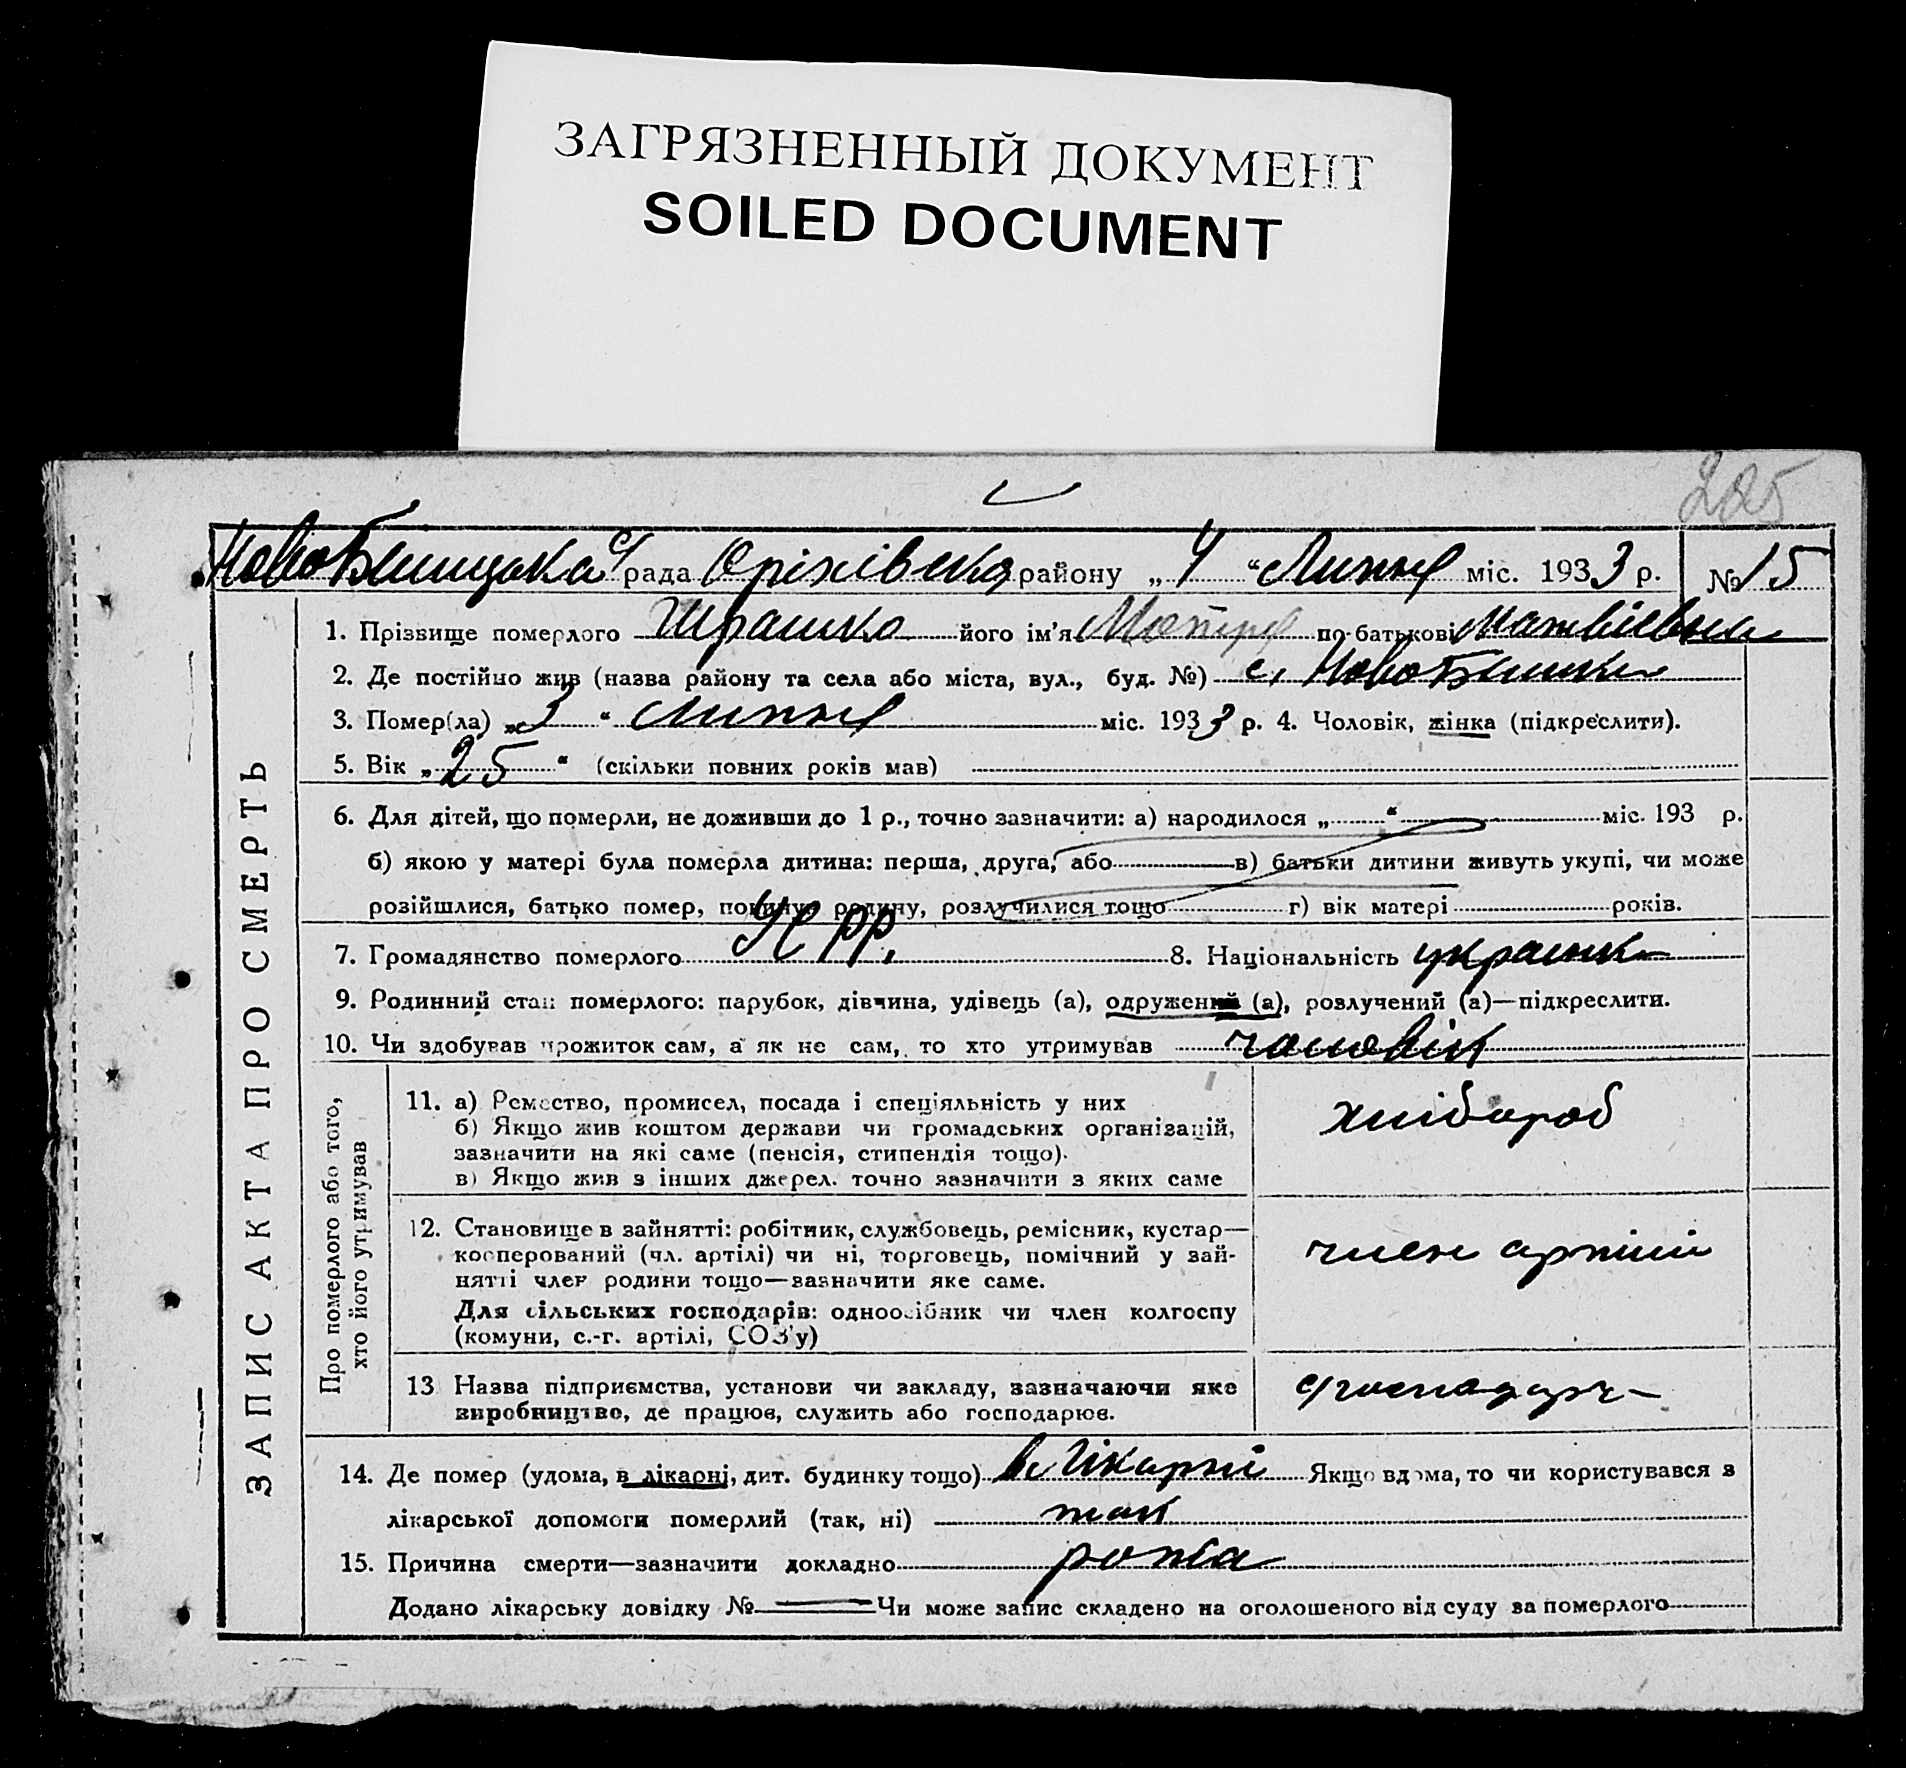 ЗАГРЯЗНЕННЫЙ ДОКУМЕНТ
SOILED DOCUMENT
205
рада Оріхівська району „ 4 “ Липня міс. 1933 р. № 15
ЗАПИС АКТА ПРО СМЕРТЬ
1. Прізвище померлого його ім'я по-батькові Матвієвна
2. Де постійно жив (назва району та села або міста, вул., буд. №) с.
3. Помер(ла) „ 3 “ Липня міс. 1933 р. 4. Чоловік, жінка (підкреслити).
5. Вік „ 25 “ (скільки повних років мав)
6. Для дітей, що померли, не доживши до 1 р., точно зазначити: а) народилося „ “ міс. 193 р.
б) якою у матері була померла дитина: перша, друга, або в) батьки дитини живуть укупі, чи може
розійшлися, батько помер, покинув родину, розлучилися тощо г) вік матері років.
7. Громадянство померлого 8. Національність
9. Родинний стан померлого: парубок, дівчина, удівець (а), одружений (а), розлучений (а)—підкреслити.
10. Чи здобував прожиток сам, а як не сам, то хто утримував чоловік
Про померлого або того,
хто його утримував
11. а) Ремество, промисел, посада і спеціяльність у них
б) Якщо жив коштом держави чи громадських організацій,
зазначити на які саме (пенсія, стипендія тощо).
в) Якщо жив з інших джерел. точно зазначити з яких саме
хлібороб
12. Становище в зайнятті: робітник, службовець, ремісник, кустар—
кооперований (чл. артілі) чи ні, торговець, помічний у зай-
нятті член родини тощо—зазначити яке саме.
Для сільських господарів: одноосібник чи член колгоспу
(комуни, с.-г. артілі, СОЗ'у)
член артілі
13 Назва підприємства, установи чи закладу, зазначаючи яке
виробництво, де працюв, служить або господарюв.
14. Де помер (удома, в лікарні, дит. будинку тощо) в лікарні Якщо вдома, то чи користувався з
лікарської допомоги померлий (так, ні) так
15. Причина смерти—зазначити докладно рожа
Додано лікарську довідку № Чи може запис складено на оголошеного від суду за померлого